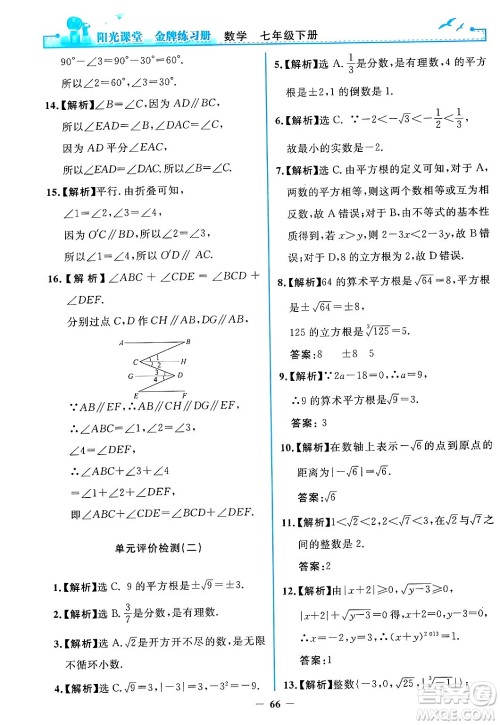 阳光课堂 金牌练习册 数学 七年级下册
90°－∠1＝∠3＝90°－∠2.
所以∠1＝∠2.
14.【解析】∠B＝∠C，因为AD∥BC，
所以∠EAD＝∠B，∠DAC＝∠C，
因为AD平分∠EAC，
所以∠EAD＝∠DAC，
所以∠B＝∠C.
15.【解析】平行. 由折叠可知，
∠1＝∠3，∠2＝∠4，因为∠1＝∠2，
所以∠3＝∠4，
因为O′C∥BD，所以O′C∥AC.
16.【解析】∠ABC＋∠CDE＝∠BCD＋
∠DEF.
分别过点C，D作CH∥AB，DG∥AB.
A B
C 1 2 H
G 3 4 D
E F
∵AB∥EF，∴AB∥CH∥DG∥EF，
∴∠ABC＝∠1，∠2＝∠3，∠DEF＝
∠4
∴∠ABC＋∠CDE＝∠1＋∠3＋∠4＝
∠1＋∠2＋∠4＝∠BCD＋∠DEF.
单元评价检测(二)
1.【解析】选C. 9的平方根是±√9＝±3.
2.【解析】选B. 3/7是分数，是有理数.
3.【解析】选A. √2是开方开不尽的数，是无限
不循环小数.
4.【解析】选C. √9＝3，³√－1＝－1，|－2|＝2.
5.【解析】选A. 1/3是分数，是有理数，4的平方
根是±2，0的倒数是1.
6.【解析】选C. ∵－2＜－√3＜－1＜0，
故最小的实数是－2.
7.【解析】选C. 由平方根的定义可知，对于A，
两数的平方相等，则两数相等或互为相反
数，所以A错误；对于B，由不等式的基本性
质得若x＞y，则2－3x＜2－3y，故D错误.
8.【解析】64的算术平方根是√64＝8，
√64的平方根是±√√64＝±√8，
125的立方根是³√125＝5.
答案：8 ±8 5
9.【解析】∵2a－18＝0，∴a＝9，
∴9的算术平方根是√9＝3.
答案：3
10.【解析】在数轴上表示－√6的点到原点的
距离是√6.
答案：√6
11.【解析】1＜√2＜2，2＜√7＜3，在√2与√7之
间的整数是2.
答案：2
12.【解析】由|x＋2|≥0，√y－3≥0，
|x＋2|＋√y－3＝0，
13.【解析】整数{√16，－3，|³√－1|…}
66